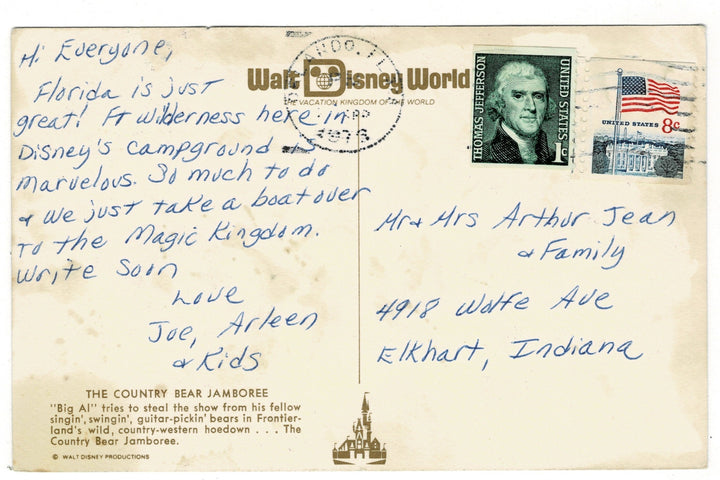 Hi Everyone,
Florida is just
great! Ft Wilderness here in
Disney's campground is
marvelous. So much to do
& we just take a boat over
to the Magic Kingdom.
Write Soon
Love
Joe, Arleen
& Kids
THE COUNTRY BEAR JAMBOREE
"Big Al" tries to steal the show from his fellow
singin', swingin', guitar-pickin' bears in Frontier-
land's wild, country-western hoedown . . . The
Country Bear Jamboree.
© WALT DISNEY PRODUCTIONS
Walt Disney World
THE VACATION KINGDOM OF THE WORLD
ORLANDO, FL
THOMAS JEFFERSON
UNITED STATES
1c
UNITED STATES
8c
Mr & Mrs Arthur Jean
& Family
4918 Wolfe Ave
Elkhart, Indiana